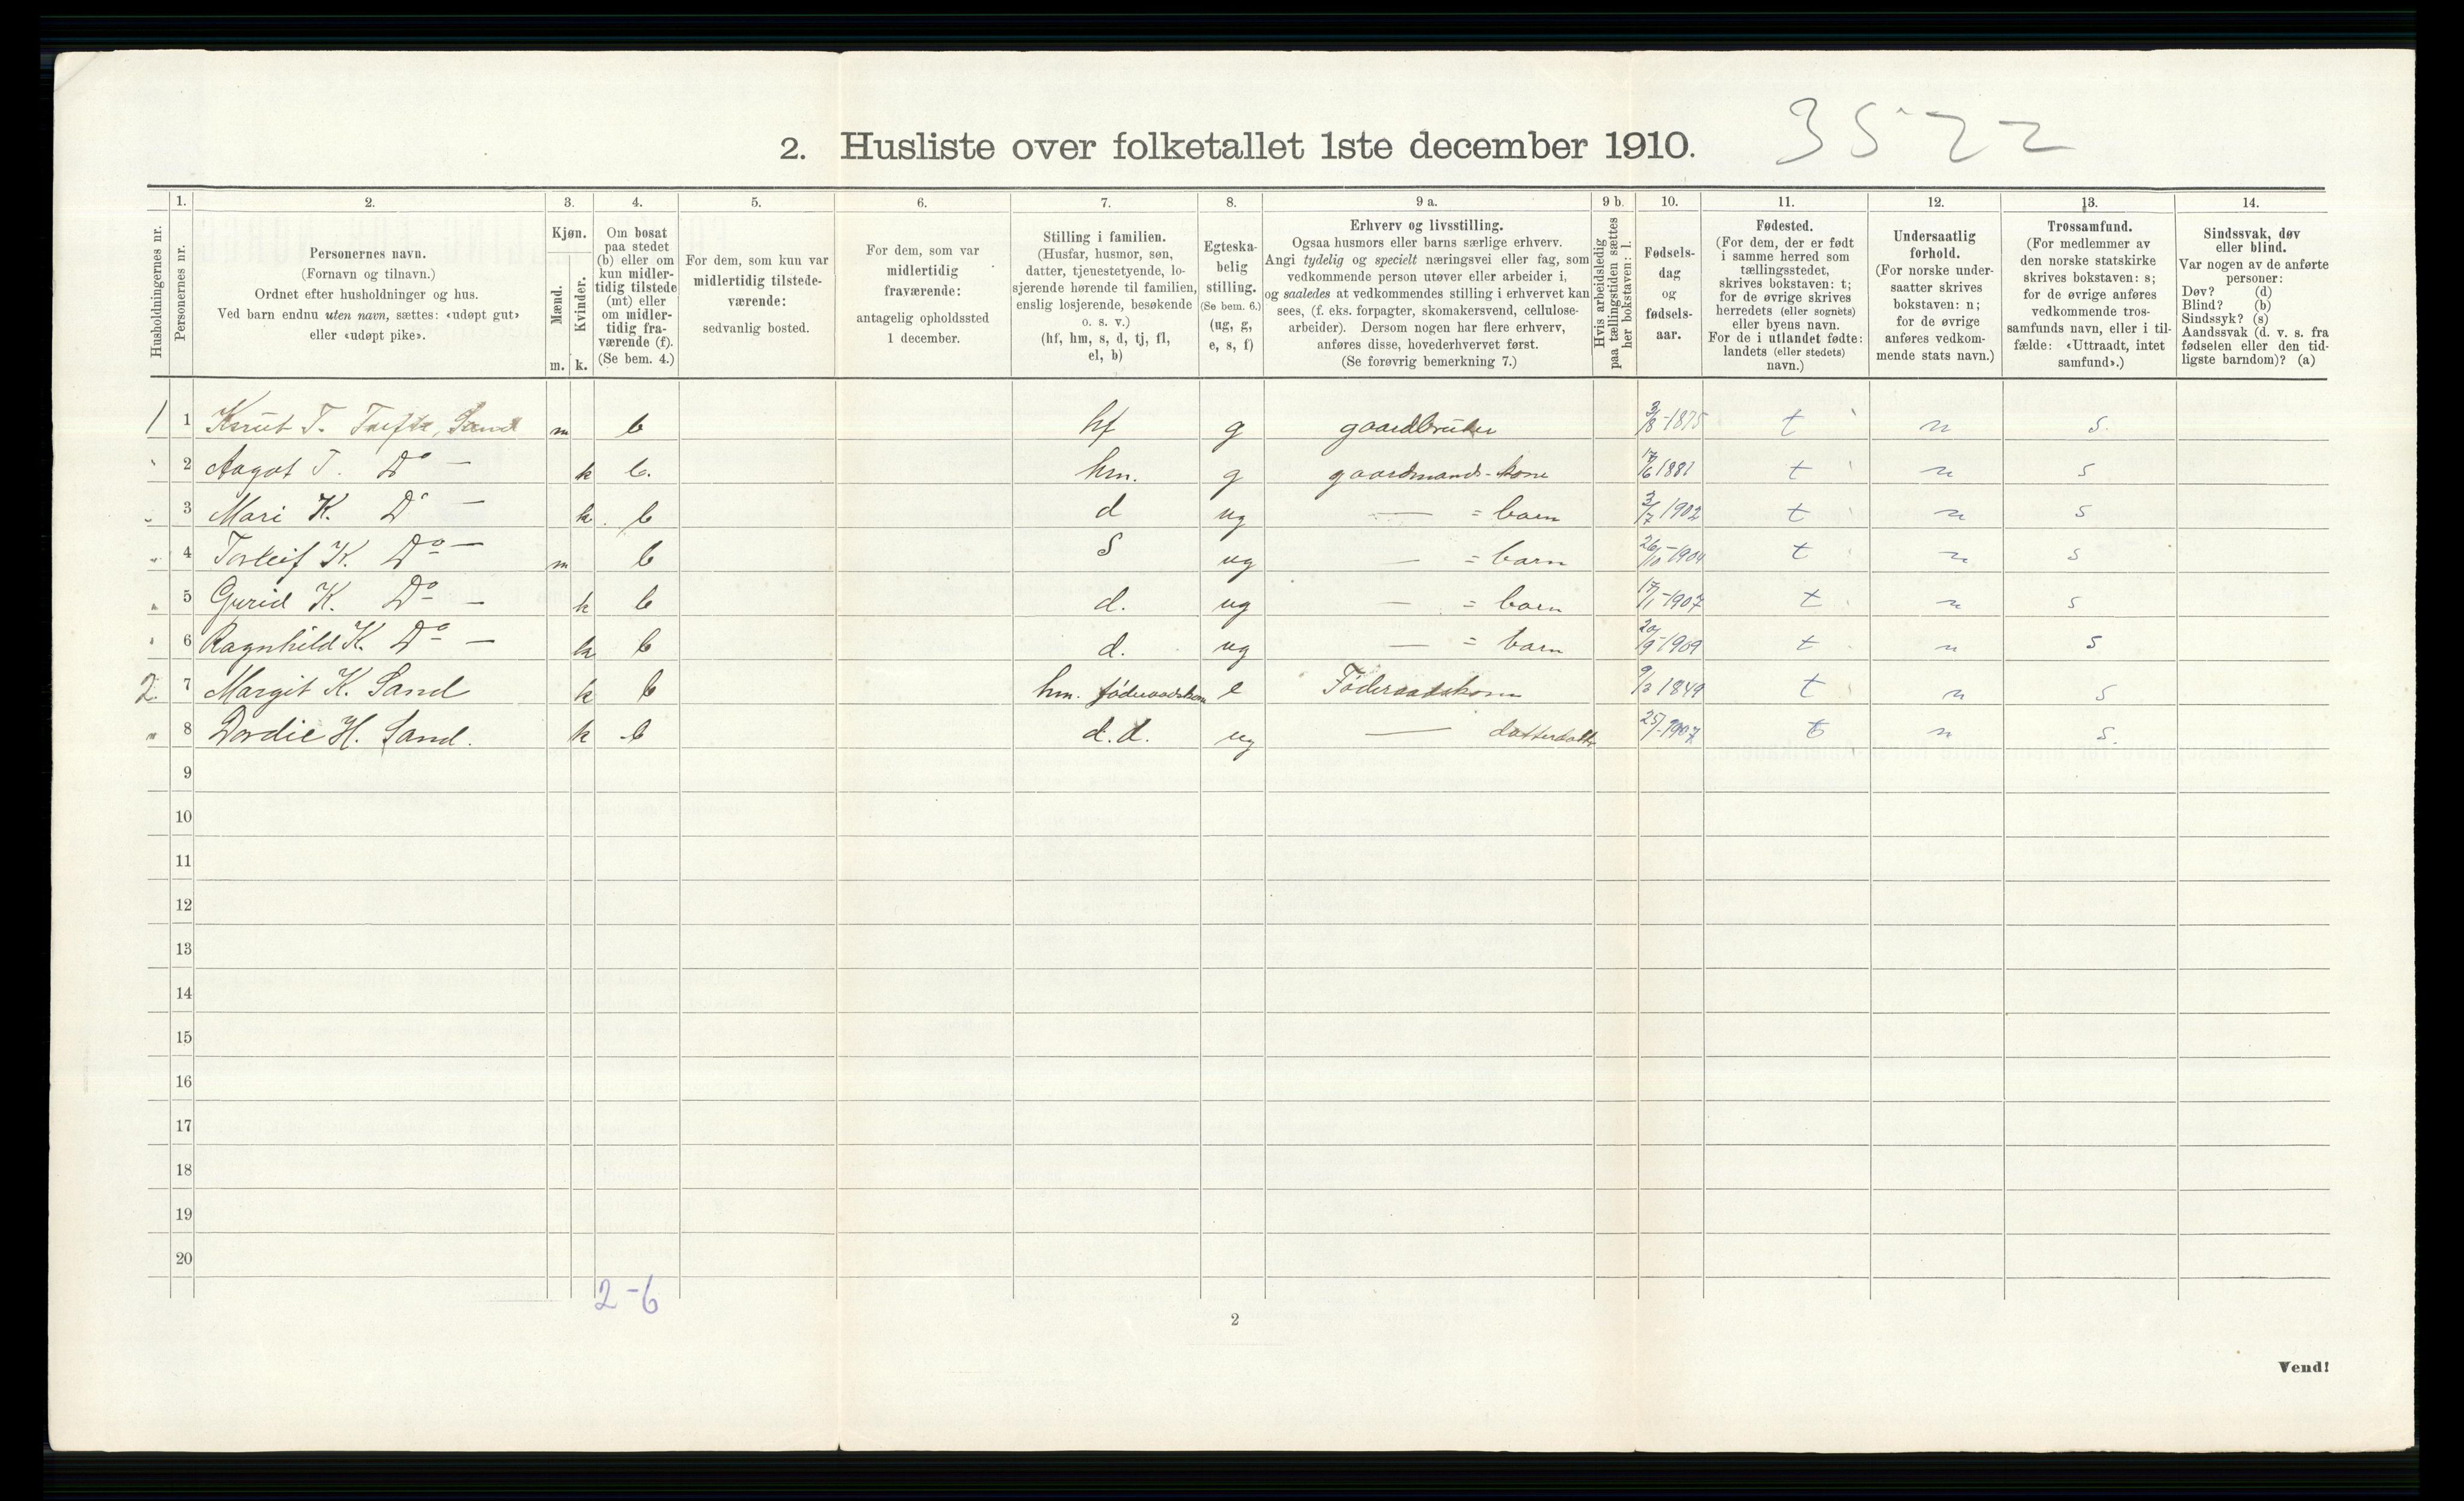 3522
2. Husliste over folketallet 1ste december 1910.
Husholdningernes nr.
1. Personernes nr.
2. Personernes navn.
(Fornavn og tilnavn.)
Ordnet efter husholdninger og hus.
Ved barn endnu uten navn, sættes: «udøpt gut»
eller «udøpt pike».
3. Kjøn.
Mænd. m.
Kvinder. k.
4. Om bosat
paa stedet
(b) eller om
kun midler-
tidig tilstede
(mt) eller
om midler-
tidig fra-
værende (f).
(Se bem. 4.)
5. For dem, som kun var
midlertidig tilstede-
værende:
sedvanlig bosted.
6. For dem, som var
midlertidig
fraværende:
antagelig opholdssted
1 december.
7. Stilling i familien.
(Husfar, husmor, søn,
datter, tjenestetyende, lo-
sjerende hørende til familien,
enslig losjerende, besøkende
o. s. v.)
(hf, hm, s, d, tj, fl,
el, b)
8. Egteska-
belig
stilling.
(Se bem. 6.)
(ug, g,
e, s, f)
9 a. Erhverv og livsstilling.
Ogsaa husmors eller barns særlige erhverv.
Angi tydelig og specielt næringsvei eller fag, som
vedkommende person utøver eller arbeider i,
og saaledes at vedkommendes stilling i erhvervet kan
sees, (f. eks. forpagter, skomakersvend, cellulose-
arbeider). Dersom nogen har flere erhverv,
anføres disse, hovederhvervet først.
(Se forøvrig bemerkning 7.)
9 b. Hvis arbeidsledig
paa tællingstiden sættes
her bokstaven: l.
10. Fødsels-
dag
og
fødsels-
aar.
11. Fødested.
(For dem, der er født
i samme herred som
tællingsstedet,
skrives bokstaven: t;
for de øvrige skrives
herredets (eller sognets)
eller byens navn.
For de i utlandet fødte:
landets (eller stedets)
navn.)
12. Undersaatlig
forhold.
(For norske under-
saatter skrives
bokstaven: n;
for de øvrige
anføres vedkom-
mende stats navn.)
13. Trossamfund.
(For medlemmer av
den norske statskirke
skrives bokstaven: s;
for de øvrige anføres
vedkommende tros-
samfunds navn, eller i til-
fælde: «Uttraadt, intet
samfund».)
14. Sindssvak, døv
eller blind.
Var nogen av de anførte
personer:
Døv? (d)
Blind? (b)
Sindssyk? (s)
Aandssvak (d. v. s. fra
fødselen eller den tid-
ligste barndom)? (a)
1 1 Knut T. Sand m b hf g gaardbruker 3/8-1875 t n s.
2 Aagot T. Do — k b. hm. g gaardmands-kone 17/6 1881 t n s
3 Mari K. Do — k. b d ug — = barn 3/7 1902 t n s
4 Torleif K. Do — m b S ug — = barn 26/10-1904 t n s
5 Gurid K. Do — k b d. ug — = barn 17/1-1907 t n s
6 Ragnhild K. Do — k b d. ug — = barn 20/9-1909 t n s
2. 7 Margit K. Sand k b hm. føderaadskone e Føderaadskone 1849 t n s
8 Dordie H. Sand. k b d.d. ug — datterdatter 1907 t n s.
9
10
11
12
13
14
15
16
17
18
19
20
2-6
2
Vend!